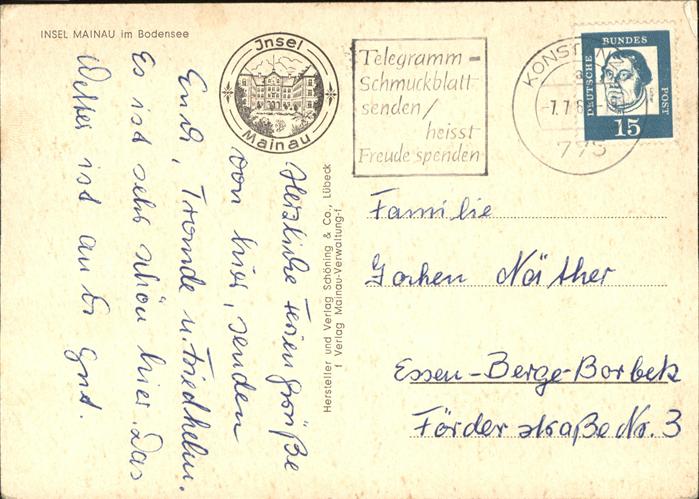 INSEL MAINAU im Bodensee
Insel
Mainau
Telegramm-
Schmuckblatt
senden/
heisst
Freude spenden
KONST
-7.7.6
775
DEUTSCHE BUNDES POST
15
Herzliche Feriengrüße
von hier, senden
Euch, Tromde u. Friedhelm.
Es ist sehr schön hier. Das
Wetter ist an der Grenz.
Hersteller und Verlag Schöning & Co., Lübeck
f Verlag Mainau-Verwaltung-f
Familie
Jochen Näther
Essen-Berge-Borbeck
Förder straße Nr. 3